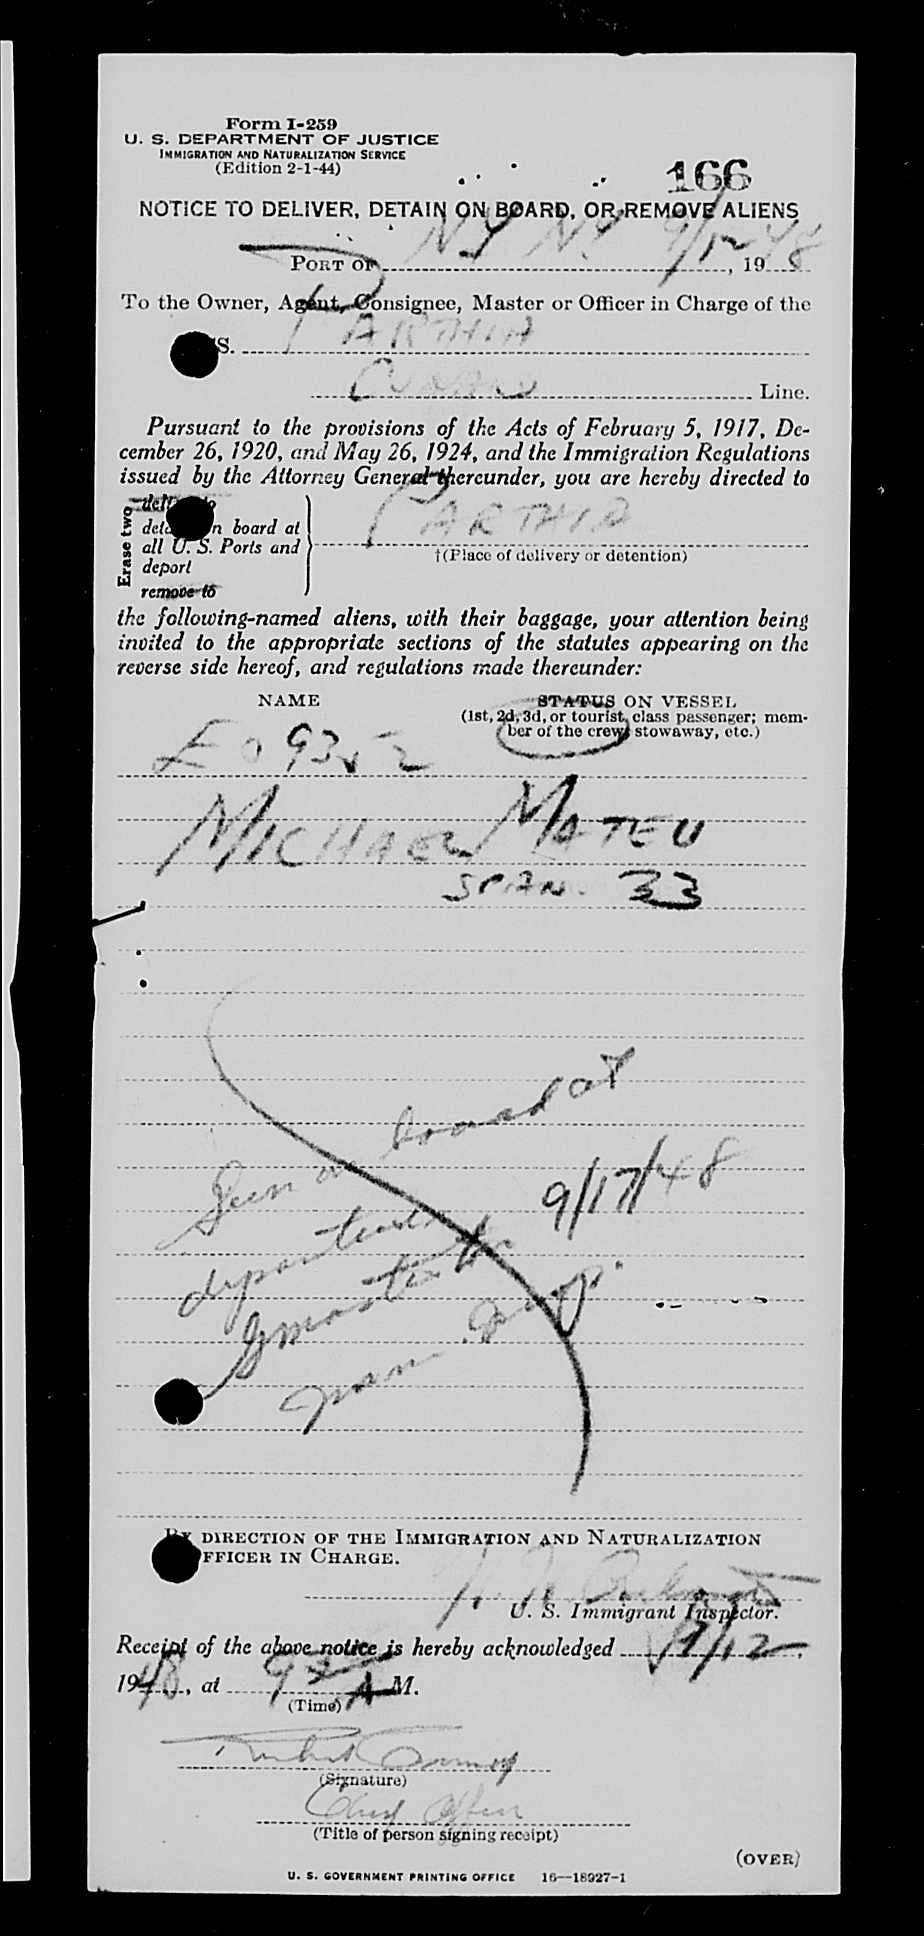 Form I-259
U. S. DEPARTMENT OF JUSTICE
IMMIGRATION AND NATURALIZATION SERVICE
(Edition 2-1-44)
166
NOTICE TO DELIVER, DETAIN ON BOARD, OR REMOVE ALIENS
PORT OF NY NY 9/12, 1948
To the Owner, Agent, Consignee, Master or Officer in Charge of the
SS. PARTHIA
Cunard Line.
Pursuant to the provisions of the Acts of February 5, 1917, De-
cember 26, 1920, and May 26, 1924, and the Immigration Regulations
issued by the Attorney General thereunder, you are hereby directed to
Erase two
deliver to
detain on board at
all U. S. Ports and
deport
remove to
PARTHIA
†(Place of delivery or detention)
the following-named aliens, with their baggage, your attention being
invited to the appropriate sections of the statutes appearing on the
reverse side hereof, and regulations made thereunder:
NAME STATUS ON VESSEL
(1st, 2d, 3d, or tourist class passenger; mem-
ber of the crew, stowaway, etc.)
EO 9352
MICHAEL MATEU
SPAN. 33
Seen on board at
departure 9/17/48
Insp.
BY DIRECTION OF THE IMMIGRATION AND NATURALIZATION
OFFICER IN CHARGE.
U. S. Immigrant Inspector.
Receipt of the above notice is hereby acknowledged 9/12,
1948, at 9 A M.
(Time)
(Signature)
Chief Officer
(Title of person signing receipt)
(OVER)
U. S. GOVERNMENT PRINTING OFFICE 16—18927-1